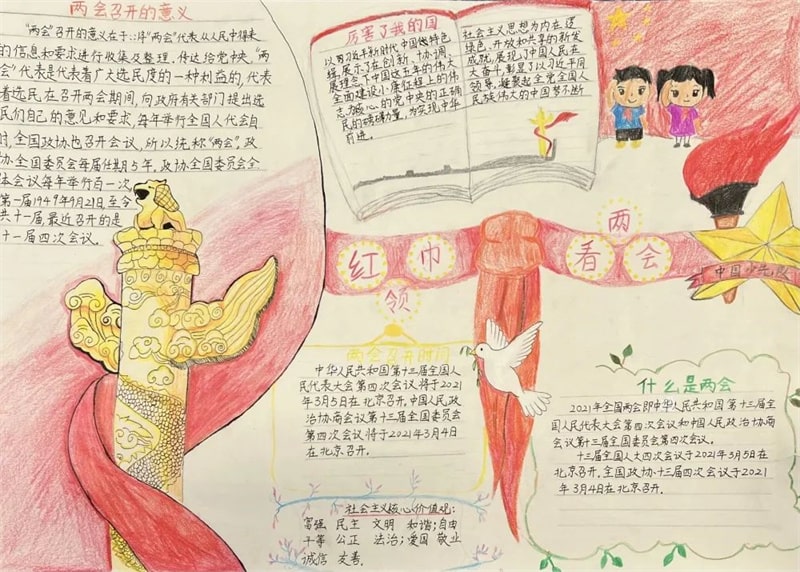 两会召开的意义
"两会"召开的意义在于:将"两会"代表从人民中得来
的信息和要求进行收集及整理,传达给党中央,"两
会"代表是代表着广大选民度的一种利益的,代表
着选民在召开两会期间,向政府有关部门提出选
民们自己的意见和要求,每年举行全国人代会自
时,全国政协也召开会议,所以统称"两会"。政
协全国委员会每届任期5年,政协全国委员会全
体会议每年举行百一次
第一届1949年9月21日至今
共十一届,最近召开的是
十一届四次会议。
厉害了我的国
以习近平新时代中国特色
辑,展示了在创新、协调、
展理念下中国这五年的伟大
全面建设小康征程上的伟
志为核心的党中央的正确
民的磅礴力量,为实现中华
前进。
社会主义思想为内在逻
绿色、开放和共享的新发
成就,展现了中国人民在
大奋斗,彰显了以习近平同
领导,凝聚起全党全国人
民族伟大的中国梦不断
红领巾看两会
中国少先队
两会召开时间
中华人民共和国第十三届全国人
民代表大会第四次会议将于2021
年3月5日在北京召开,中国人民政
治协商会议第十三届全国委员会
第四次会议将于2021年3月4日
在北京召开.
什么是两会
2021年全国两会即中华人民共和国第十三届全
国人民代表大会第四次会议和中国人民政治协商
会议第十三届全国委员会第四次会议。
十三届全国人大四次会议于2021年3月5日在
北京召开,全国政协十三届四次会议于2021
年3月4日在北京召开.
社会主义核心价值观:
富强 民主 文明 和谐;自由
平等 公正 法治;爱国 敬业
诚信 友善.